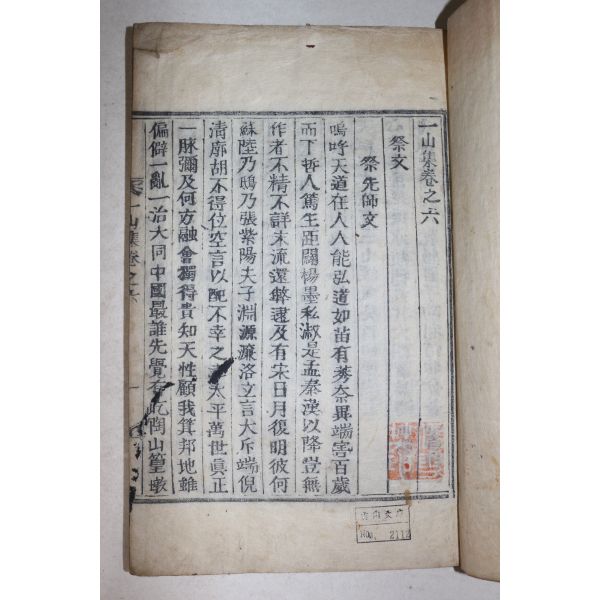 一山集卷之六
祭文
祭先師文
嗚呼天道在人人能弘道如苗有莠奈異端害百歲
而丁哲人篤生距闢楊墨私淑是孟秦漢以降豈無
作者不精不詳末流還弊逮及有宋日月復明彼何
蘇陸乃鴟乃張紫陽夫子淵源濂洛立言大斥端倪
淸廓胡不得位空言以配不幸之 太平萬世眞正
一脉彌及何方融會獨得貴知天性顧我箕邦地雖
偏僻一亂一治大同中國最誰先覺有屹陶山篁墩
一山集卷之六
No. 2112